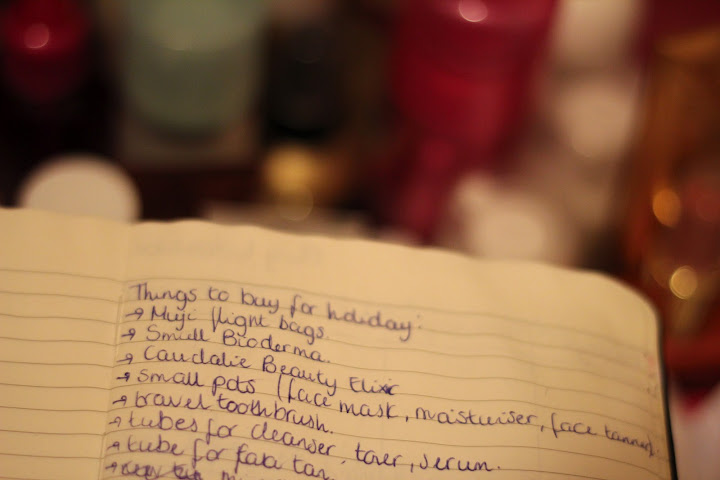 Things to buy for holiday:
→ Muji flight bags.
→ Small Bioderma.
→ Caudalie Beauty Elixir
→ Small pots (face mask, moisturiser, face tanner).
→ travel toothbrush.
→ tubes for cleanser, toner, serum.
→ tube for fake tan
→